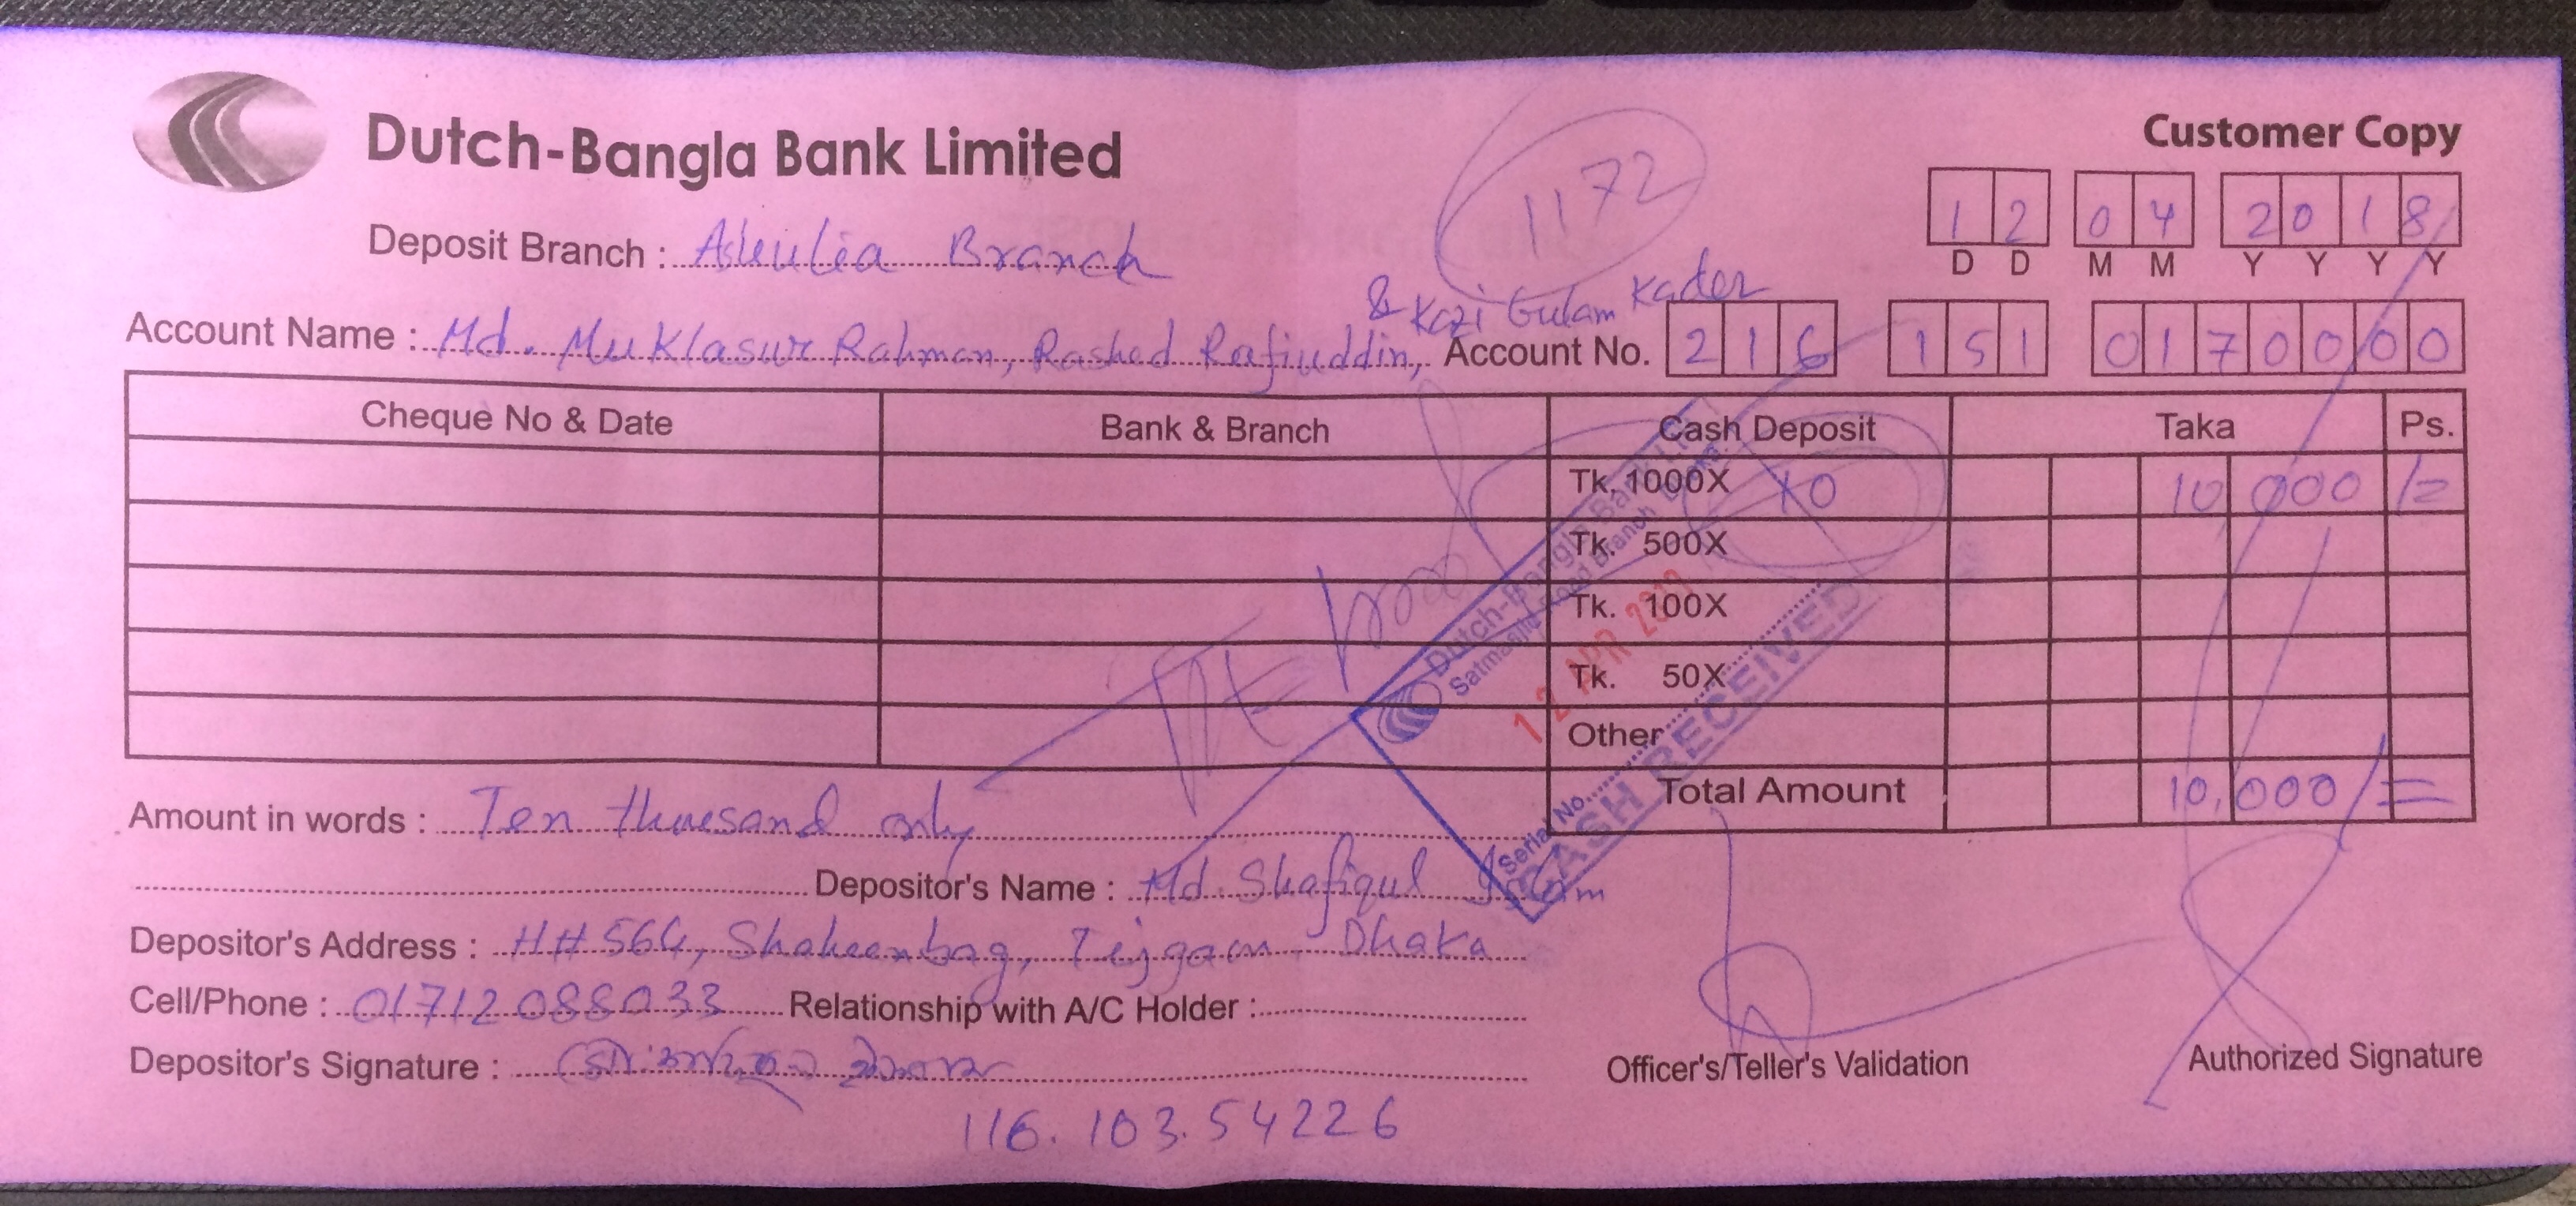 Dutch-Bangla Bank Limited
Customer Copy
1172
12 04 2018
DD MM YYYY
Deposit Branch : Ashulia Branch
& Kazi Gulam Kader
Account Name : Md. Muklasur Rahman, Rashed Rafiuddin, Account No. 216 151 0170000
Cheque No & Date Bank & Branch Cash Deposit Taka Ps.
Tk. 1000X 10 10,000 /=
Tk. 500X
Tk. 100X
Tk. 50X
Other
Total Amount 10,000/=
Dutch-Bangla Bank
Satmasjid Road Branch
12 APR 201
Serial No.
CASH RECEIVED
Amount in words : Ten thousand only
Depositor's Name : Md. Shafiqul Islam
Depositor's Address : H# 564, Shaheenbag, Tejgaon Dhaka
Cell/Phone : 01712088033 Relationship with A/C Holder :
Depositor's Signature :
Officer's/Teller's Validation Authorized Signature
116.103.54226